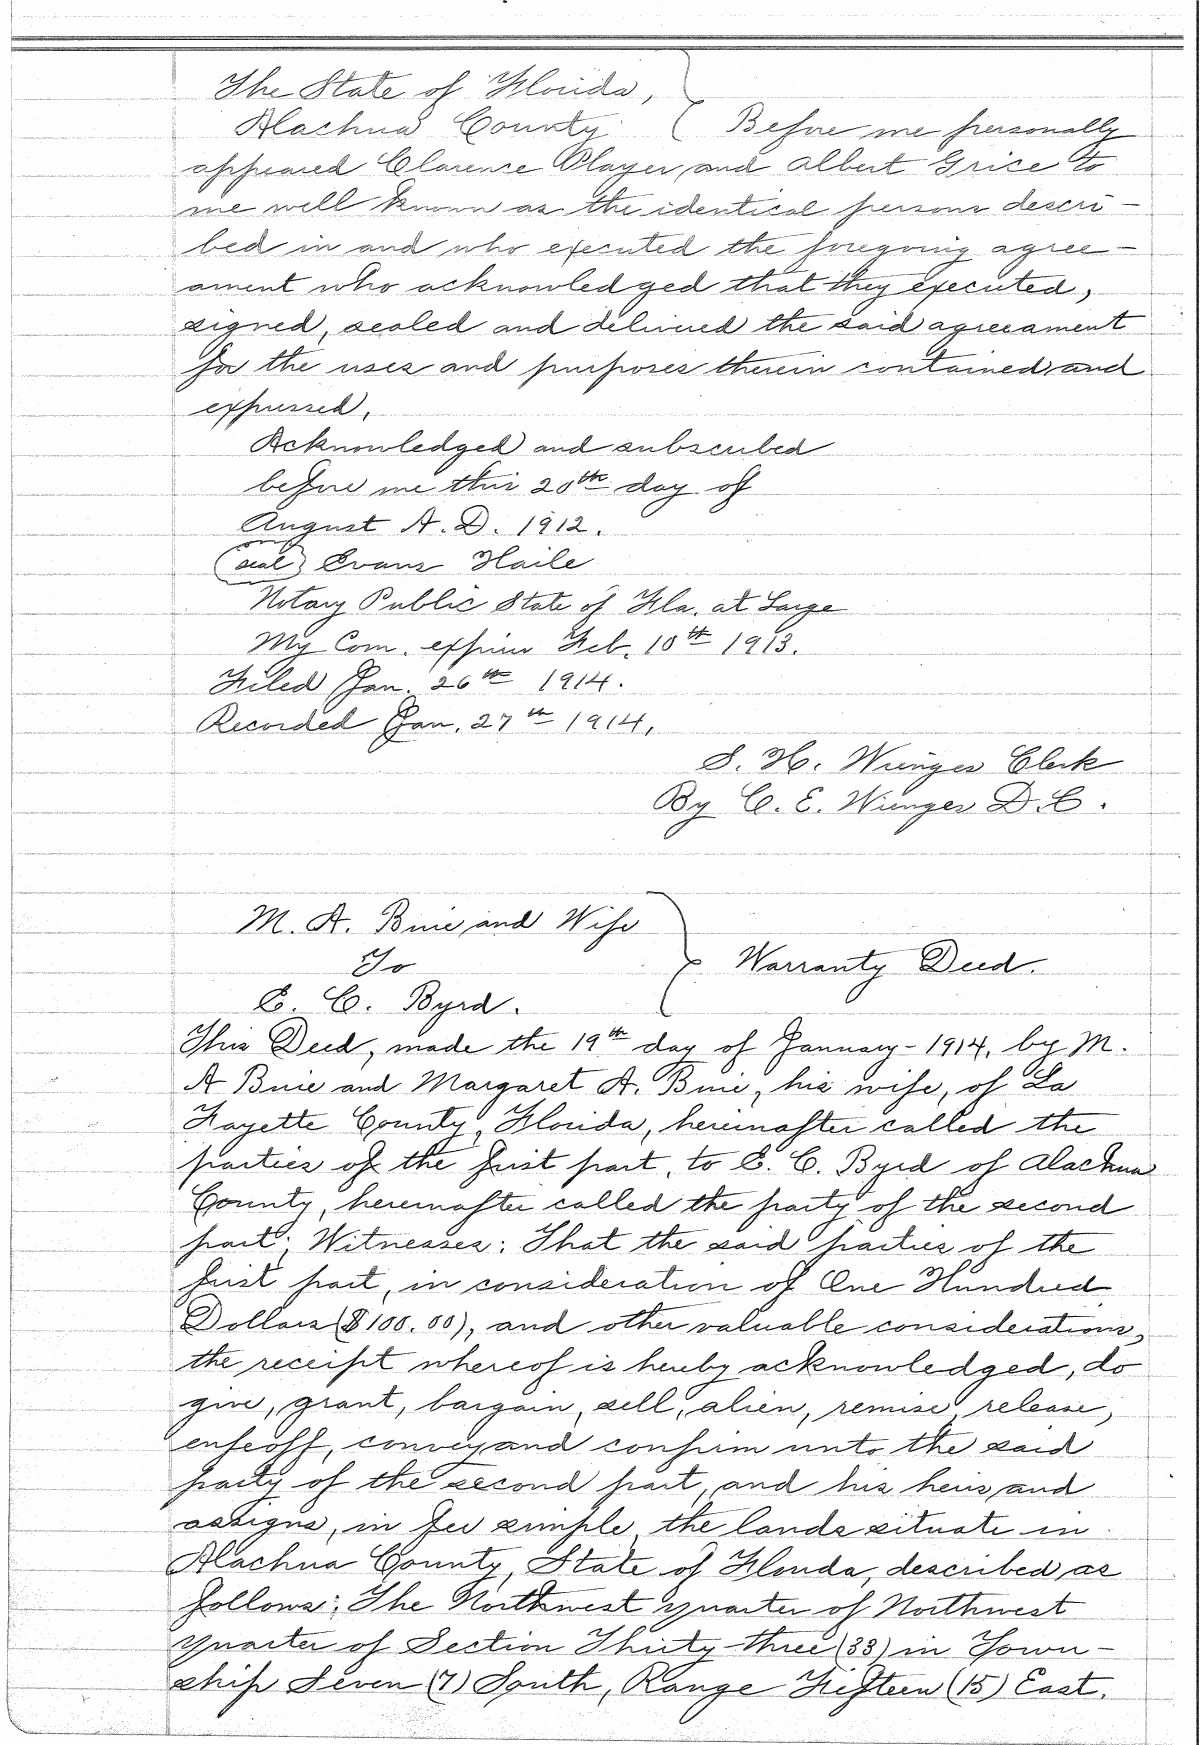 The State of Florida,
Alachua County. Before me personally
appeared Clarence Player and Albert Grice to
me well known as the identical persons descri-
bed in and who executed the foregoing agree-
ament who acknowledged that they executed,
signed, sealed and delivered the said agreeament
for the uses and purposes therein contained and
expressed.
Acknowledged and subscribed
before me this 20th day of
August A.D. 1912.
(seal) Evans Haile
Notary Public State of Fla. at Large
My Com. expires Feb. 10th 1913.
Filed Jan. 26th 1914.
Recorded Jan. 27th 1914.
S. H. Wienges Clerk
By C. E. Wienges D.C.
M. A. Buie and Wife
To
Warranty Deed.
E. C. Byrd.
This Deed, made the 19th day of January - 1914, by M.
A Buie and Margaret A. Buie, his wife, of La
Fayette County, Florida, hereinafter called the
parties of the first part, to E. C. Byrd of Alachua
County, hereinafter called the party of the second
part; Witnesses: That the said parties of the
first part, in consideration of One Hundred
Dollars ($100.00), and other valuable considerations,
the receipt whereof is hereby acknowledged, do
give, grant, bargain, sell, alien, remise, release,
enfeoff, convey and confirm unto the said
party of the second part, and his heirs and
assigns, in fee simple, the lands situate in
Alachua County, State of Florida, described as
follows: The Northwest quarter of Northwest
quarter of Section Thirty-three (33) in Town-
ship Seven (7) South, Range Fifteen (15) East.